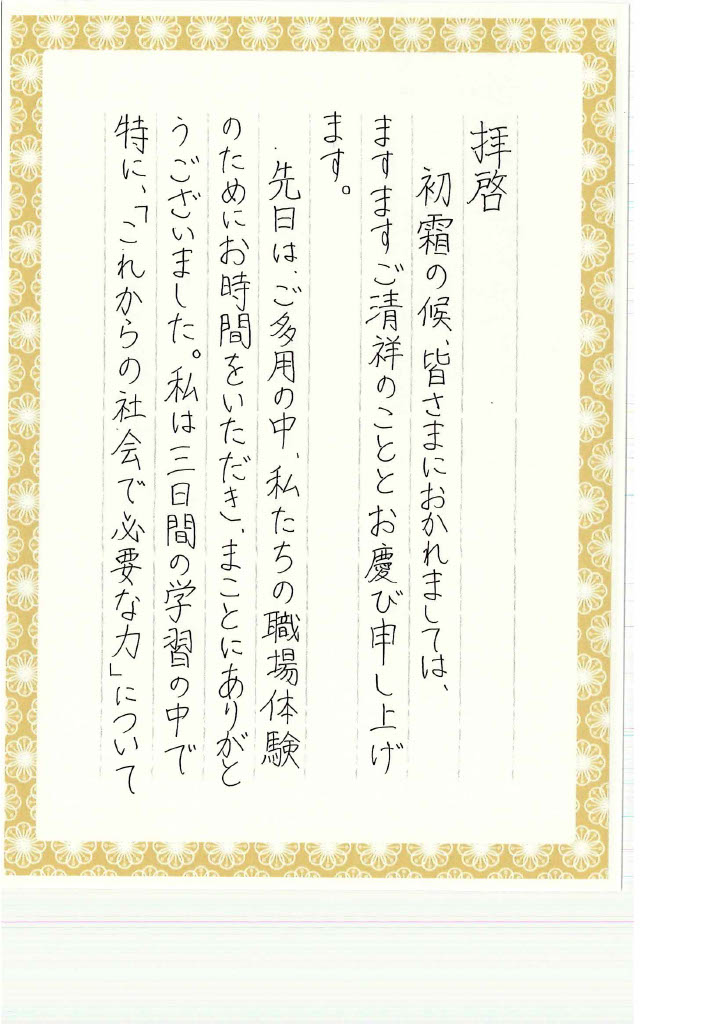 拝啓
初霜の候、皆さまにおかれましては、
ますますご清祥のこととお慶び申し上げ
ます。
先日は、ご多用の中、私たちの職場体験
のためにお時間をいただき、まことにありがと
うございました。私は三日間の学習の中で
特に、「これからの社会で必要な力」について